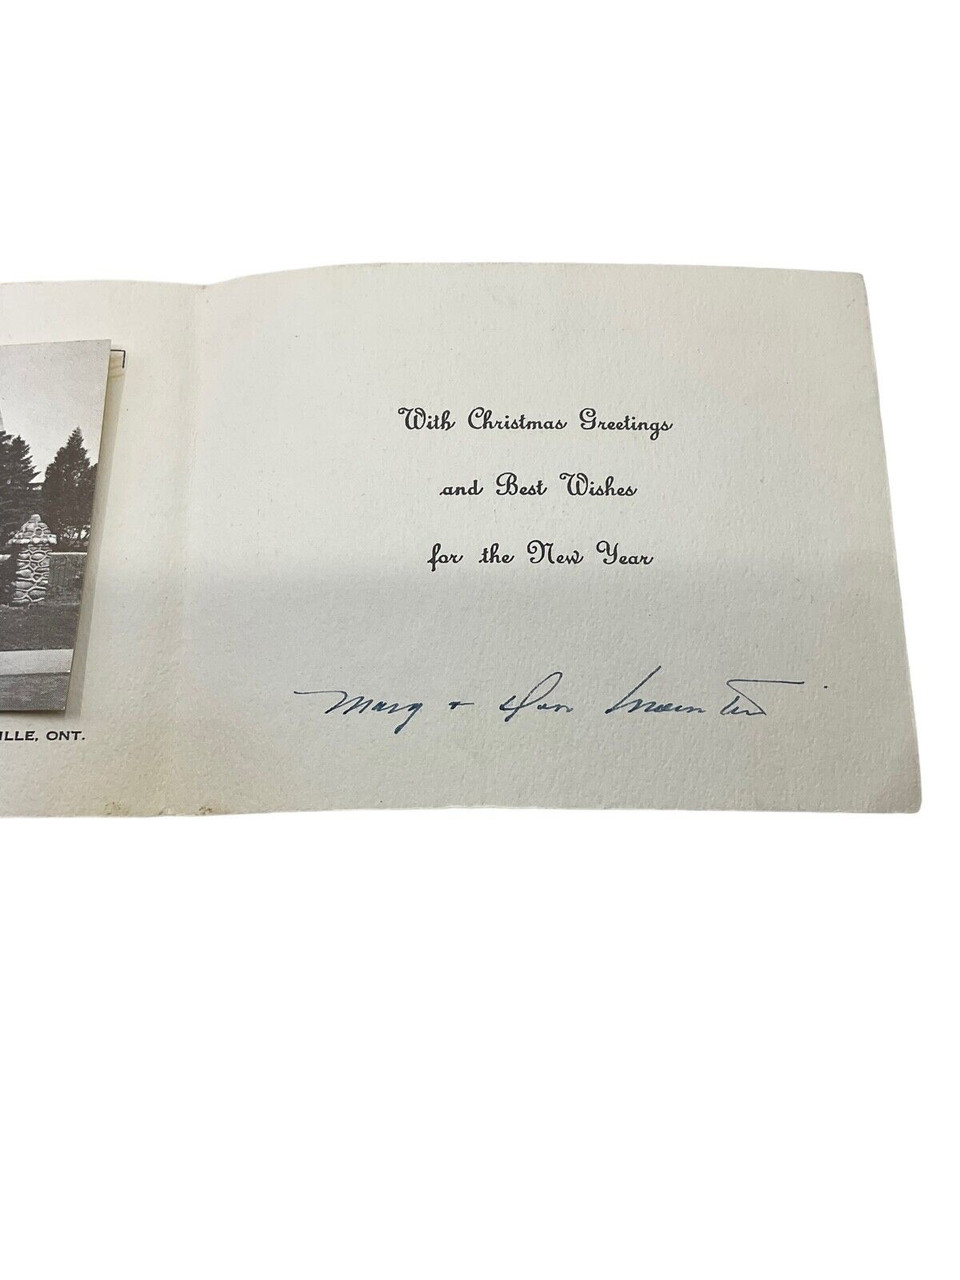 With Christmas Greetings
and Best Wishes
for the New Year
Mary + Don
ILLE, ONT.